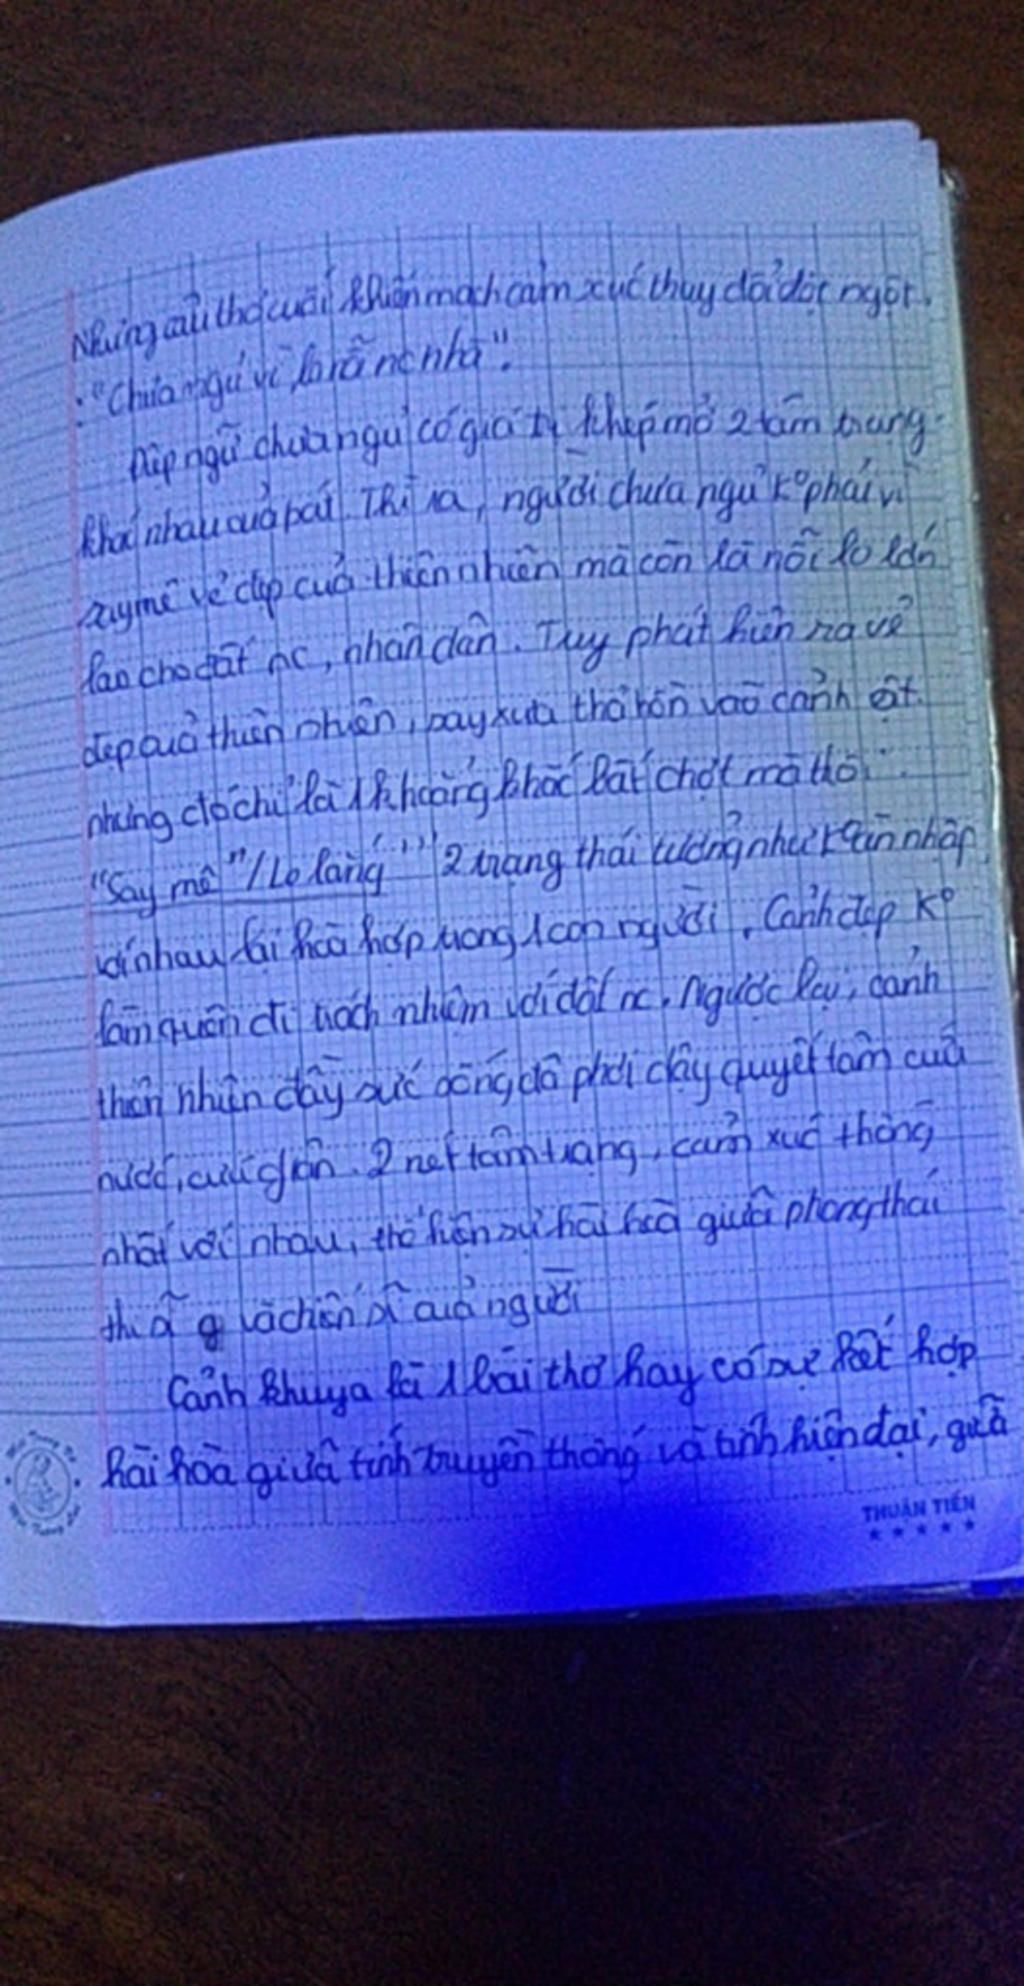 Nhưng câu thơ cuối khiến mạch cảm xúc thay đổi đột ngột.
"Chưa ngủ vì lo nỗi nc nhà".
Điệp ngữ chưa ngủ có giá trị khép mở 2 tâm trạng
khác nhau của bác. Thì ra, người chưa ngủ k° phải vì
say mê vẻ đẹp của thiên nhiên mà còn là nỗi lo lớn
lao cho đất nc, nhân dân. Tuy phát hiện ra vẻ
đẹp của thiên nhiên, thả hồn vào cảnh vật
nhưng đó chỉ là 1 khoảng khắc bất chợt mà thôi.
"Say mê"/"Lo lắng" 2 trạng thái tưởng như k° nhập
với nhau lại hoà hợp trong 1 con người. Cảnh đẹp k°
làm quên đi trách nhiệm với đất nc. Ngược lại, cảnh
thiên nhiên đầy sức sống đã phơi dậy quyết tâm cứu
nước, cứu dân. 2 nét tâm trạng, cảm xúc thống
nhất với nhau, thể hiện sự hài hoà giữa phong thái
thi sĩ và chiến sĩ của người
Cảnh khuya là 1 bài thơ hay có sự kết hợp
hài hòa giữa tính truyền thống và tính hiện đại, giữa
THUẬN TIẾN